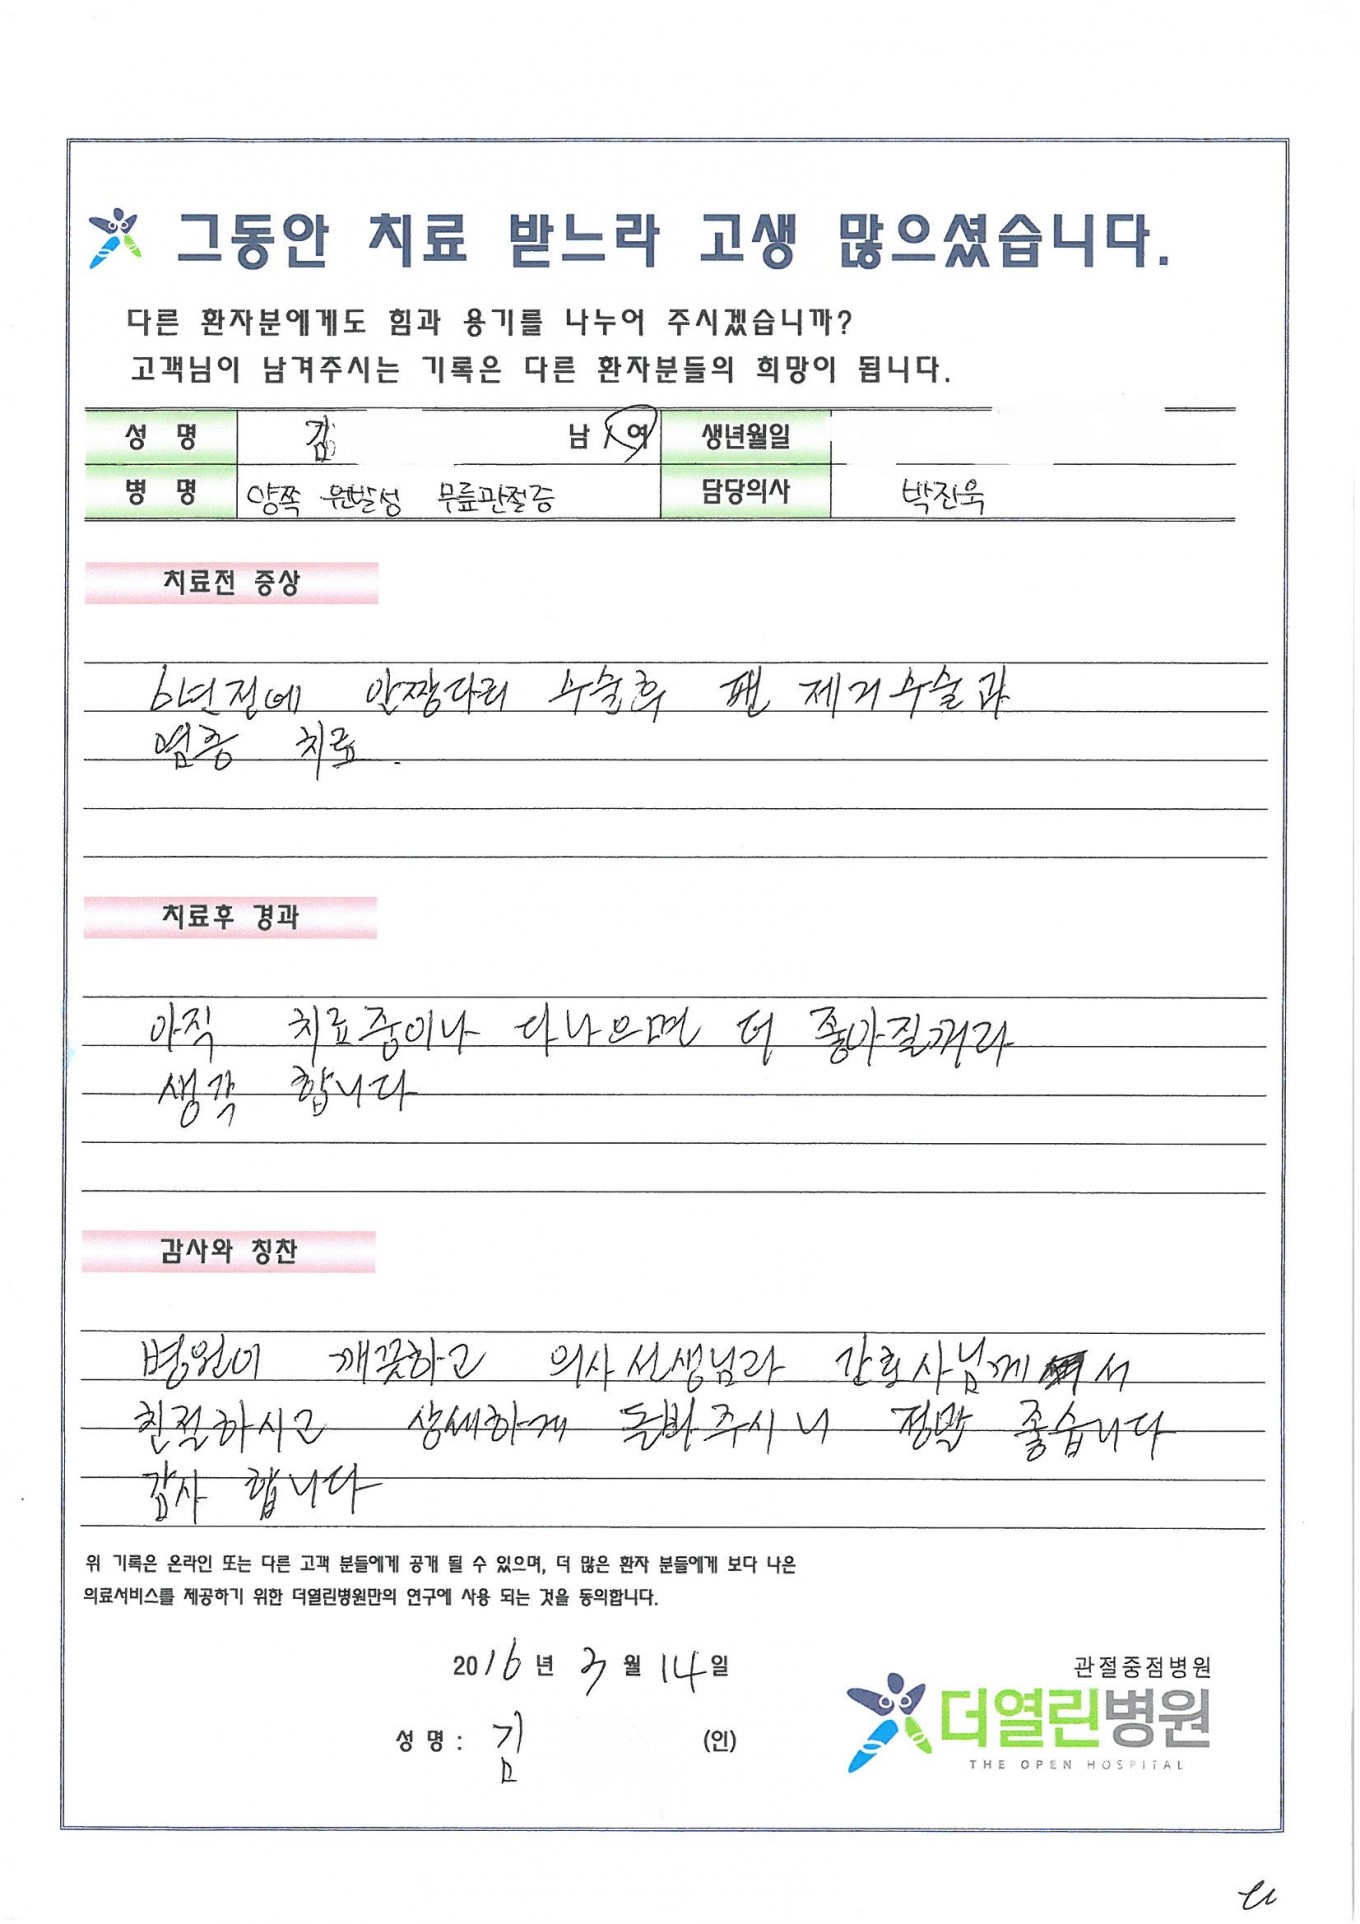 그동안 치료 받느라 고생 많으셨습니다.
다른 환자분에게도 힘과 용기를 나누어 주시겠습니까?
고객님이 남겨주시는 기록은 다른 환자분들의 희망이 됩니다.
성 명 김 남 여 생년월일
병 명 양쪽 원발성 무릎관절증 담당의사 박진욱
치료전 증상
6년전에 안짱다리 수술후 팬 제거수술과
염증 치료.
치료후 경과
아직 치료중이나 다나으면 더 좋아질꺼라
생각 합니다
감사와 칭찬
병원이 깨끗하고 의사선생님과 간호사님께서
친절하시고 상세하게 돌봐주시니 정말 좋습니다
감사 합니다
위 기록은 온라인 또는 다른 고객 분들에게 공개 될 수 있으며, 더 많은 환자 분들에게 보다 나은
의료서비스를 제공하기 위한 더열린병원만의 연구에 사용 되는 것을 동의합니다.
2016년 3월 14일
성 명 : 김 (인)
관절중점병원
더열린병원
THE OPEN HOSPITAL